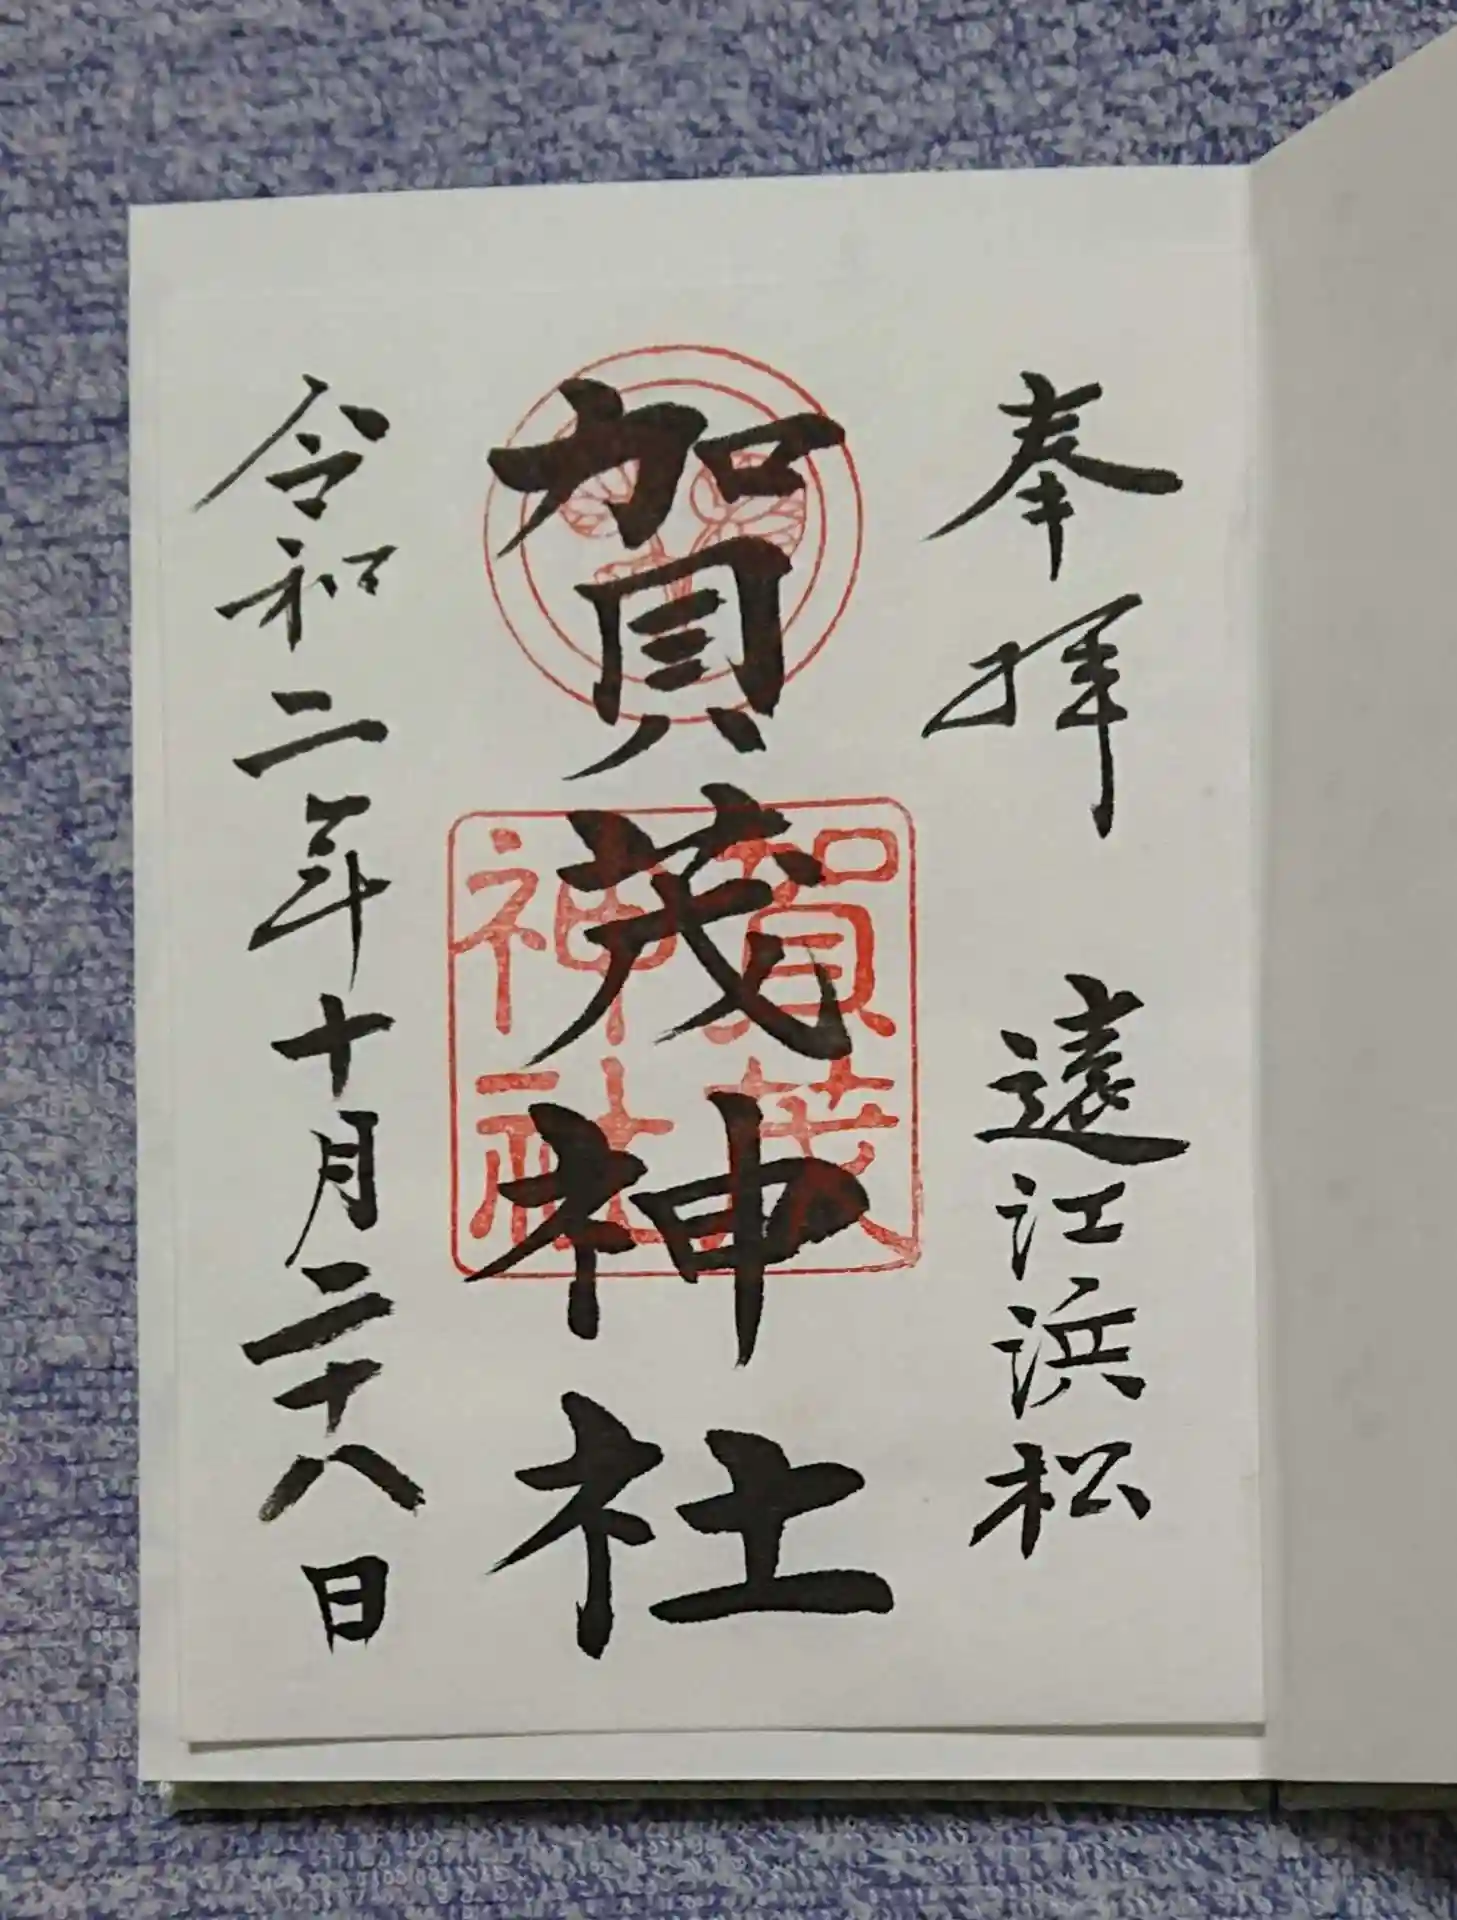 奉拝 遠江浜松
賀茂神社
賀茂
神社
令和二年十月二十八日